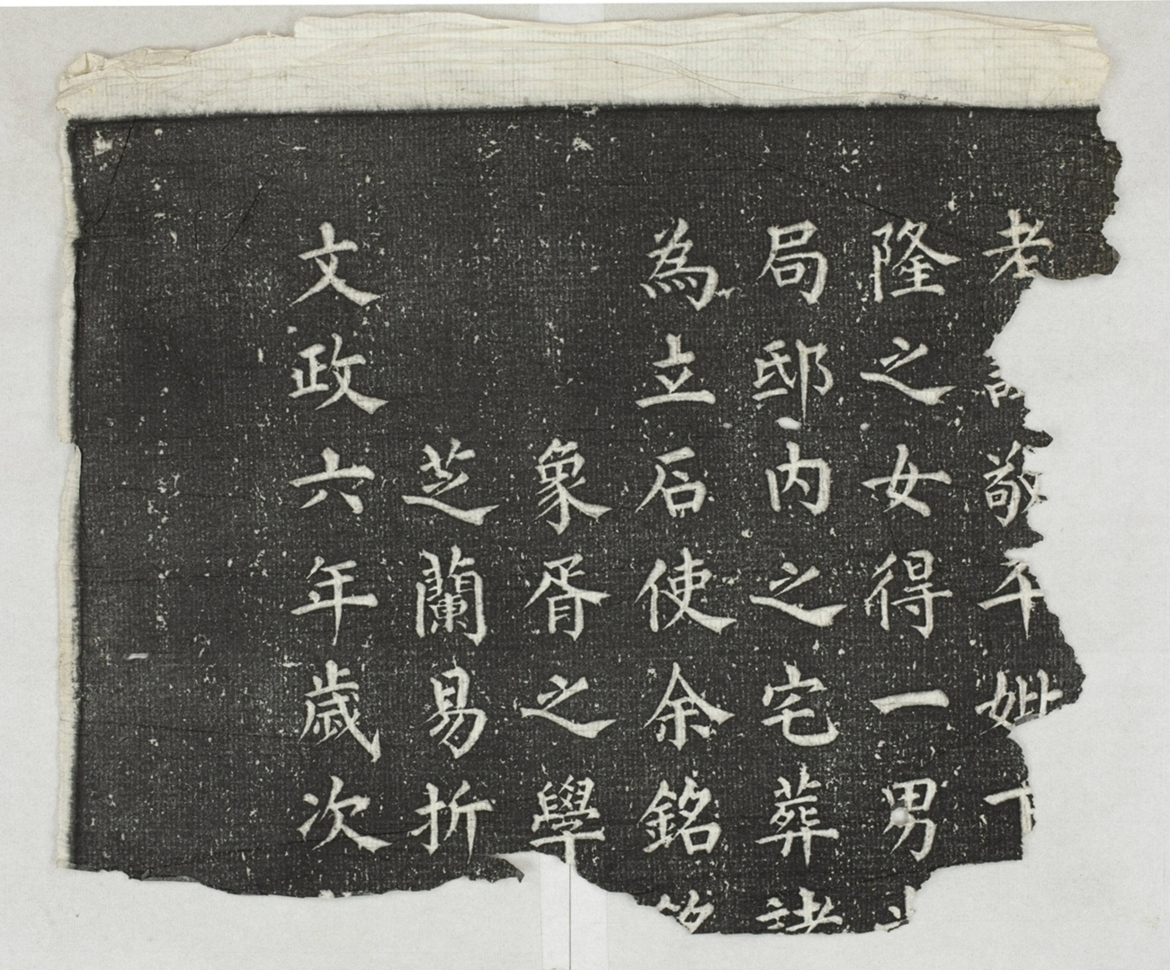 老敬
隆之女得一男
局邸内之宅葬諸
為立石使余銘銘
象胥之學
芝蘭易折
文政六年歳次